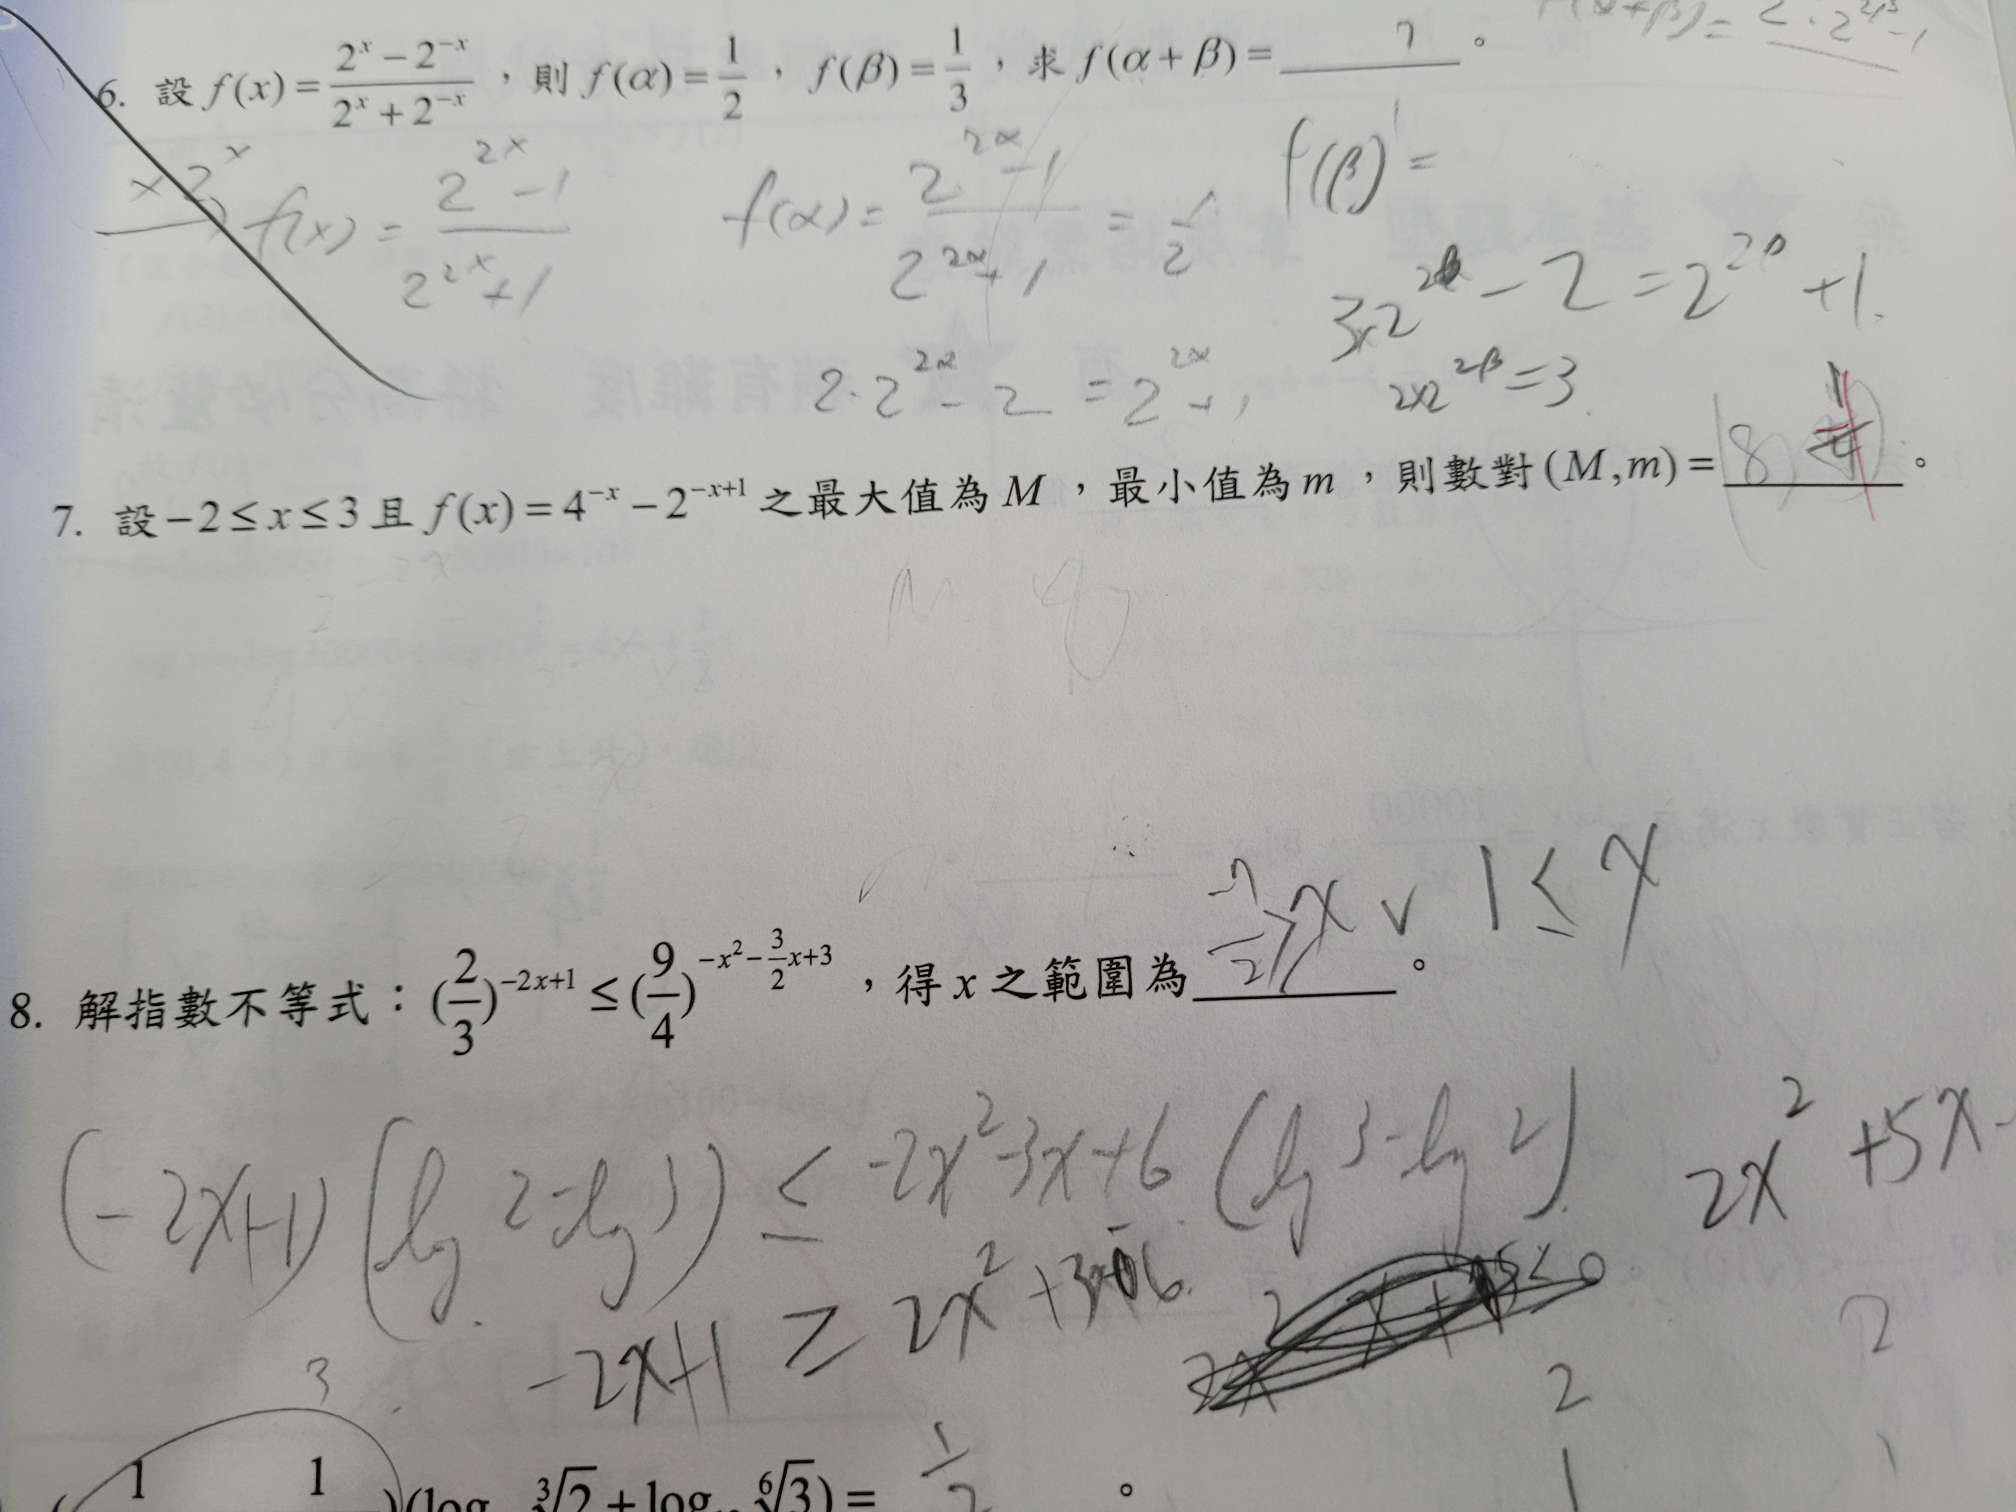 f(α+β) = 2·2^{2β}-1
6. 設 f(x) = \frac{2^x - 2^{-x}}{2^x + 2^{-x}}，則 f(α) = \frac{1}{2}，f(β) = \frac{1}{3}，求 f(α + β) = 7 。
×2^x f(x) = \frac{2^{2x}-1}{2^{2x}+1} f(α) = \frac{2^{2α}-1}{2^{2α}+1} = \frac{1}{2} f(β) =
3×2^{2β} - 2 = 2^{2β} + 1
2·2^{2α} - 2 = 2^{2α}+1 2×2^{2β} = 3
7. 設 -2 ≤ x ≤ 3 且 f(x) = 4^{-x} - 2^{-x+1} 之最大值為 M ，最小值為 m ，則數對 (M, m) = (8, 。
8. 解指數不等式：(\frac{2}{3})^{-2x+1} ≤ (\frac{9}{4})^{-x^2-\frac{3}{2}x+3}，得 x 之範圍為 x ∨ 1 ≤ x 。
(-2x+1)(log 2-log 3) ≤ -2x^2-3x+6 (log 3-log 2) 2x^2 +5x-
-2x+1 ≥ 2x^2+3x-6
3 2 2
1 1 )(log \sqrt[3]{2} + log \sqrt[6]{3}) = \frac{1}{2} 。 1 1